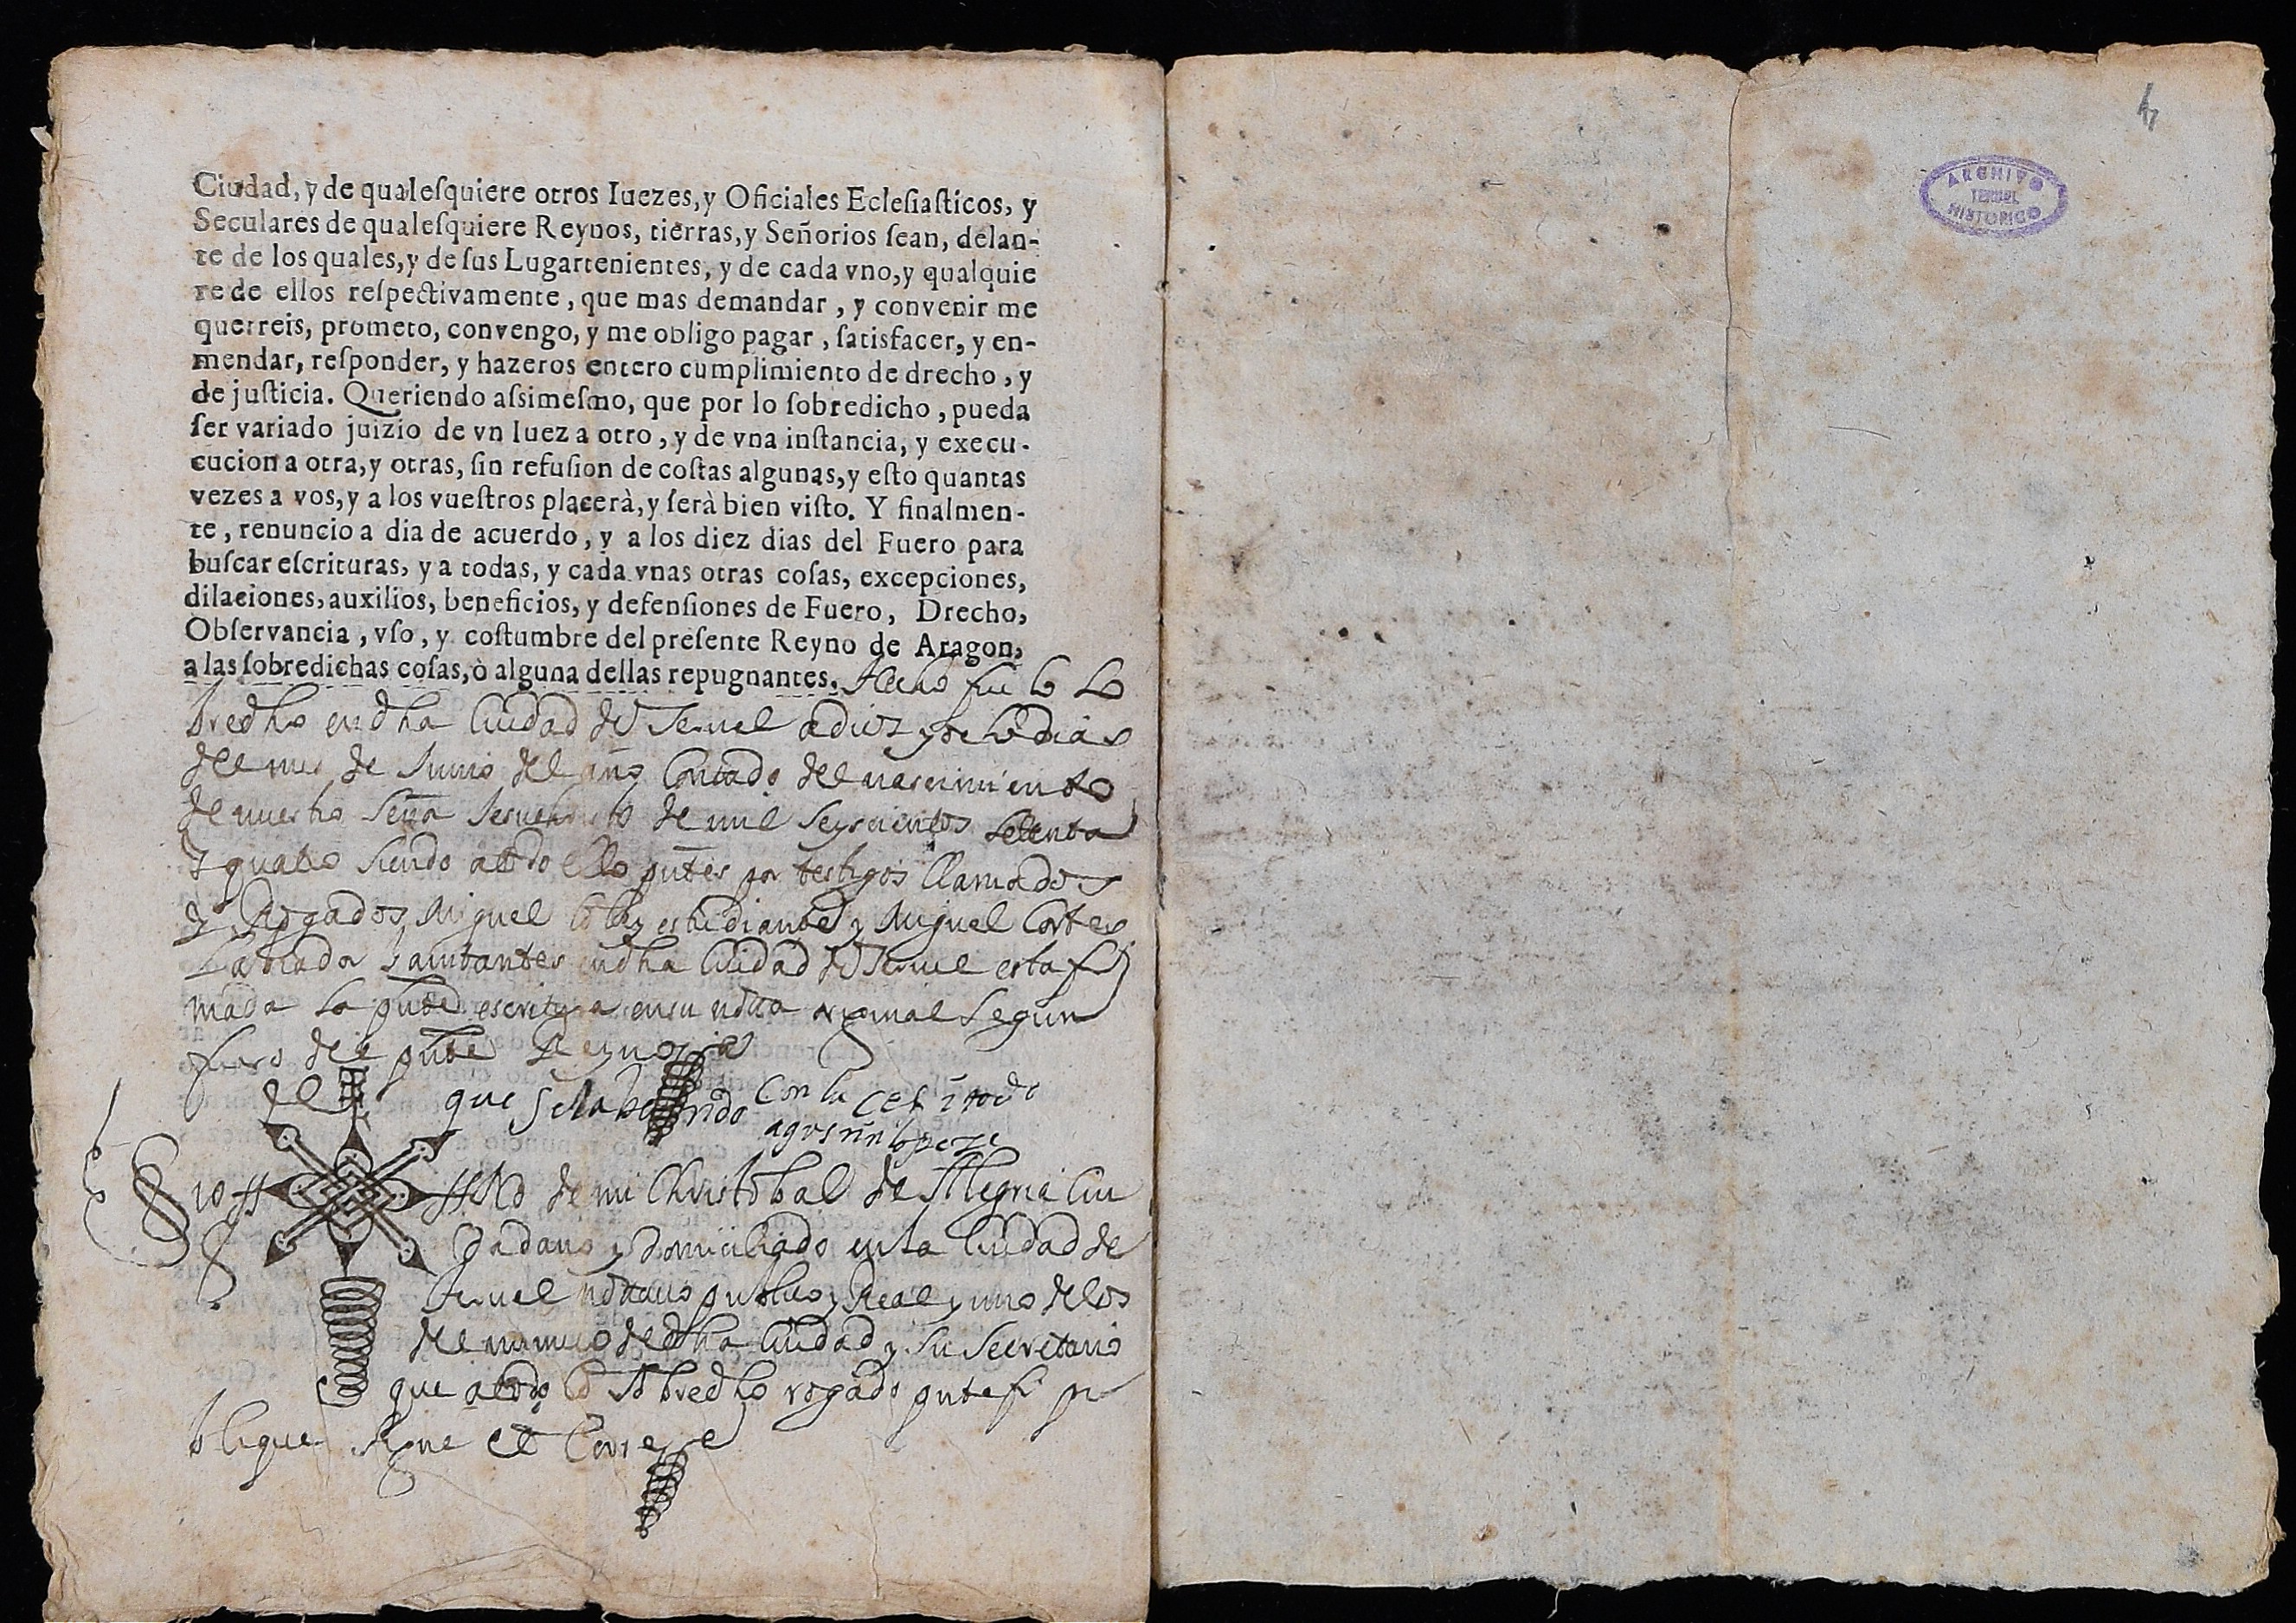 Ciudad, y de qualeſquiere otros Iuezes, y Oficiales Ecleſiaſticos, y
Seculares de qualeſquiere Reynos, tierras, y Señorios ſean, delan-
te de los quales, y de ſus Lugartenientes, y de cada vno, y qualquie
re de ellos reſpectivamente, que mas demandar, y convenir me
querreis, prometo, convengo, y me obligo pagar, ſatisfacer, y en-
mendar, reſponder, y hazeros entero cumplimiento de drecho, y
de juſticia. Queriendo aſsimeſmo, que por lo ſobredicho, pueda
ſer variado juizio de vn Iuez a otro, y de vna inſtancia, y execu-
cucion a otra, y otras, ſin refuſion de coſtas algunas, y eſto quantas
vezes a vos, y a los vueſtros placerà, y ſerà bien viſto. Y finalmen-
te, renuncio a dia de acuerdo, y a los diez dias del Fuero para
buſcar eſcrituras, y a todas, y cada vnas otras coſas, excepciones,
dilaciones, auxilios, beneficios, y defenſiones de Fuero, Drecho,
Obſervancia, vſo, y coſtumbre del preſente Reyno de Aragon,
a las ſobredichas coſas, ò alguna dellas repugnantes. Hecho fue lo So
bredho en dha Ciudad de Teruel a diez y ocho dias
del mes de Junio del año Contado del nascimiento
de nuestro Señor Jesuchristo de mil Seyscientos Setenta
y quatro siendo a todo ello pntes por testigos llamados
y Rogados Miguel estudiante y Miguel Cortes
Labrador hauitantes en dha Ciudad de Teruel esta fir
mada la pnte escritura en su nota original Segun
fuero del pnte Reyno
que
Con la
agustin lopeze
Sig no de mi Christobal de Alegria Ciu
dadano y Domiciliado en la Ciudad de
Teruel notario publico y Real y uno de los
del numero de dha Ciudad y su Secretario
que a todo lo Sobredho rogado pnte fui
blique Signe et Cerre
4
ARCHIVO
TERUEL
HISTORICO